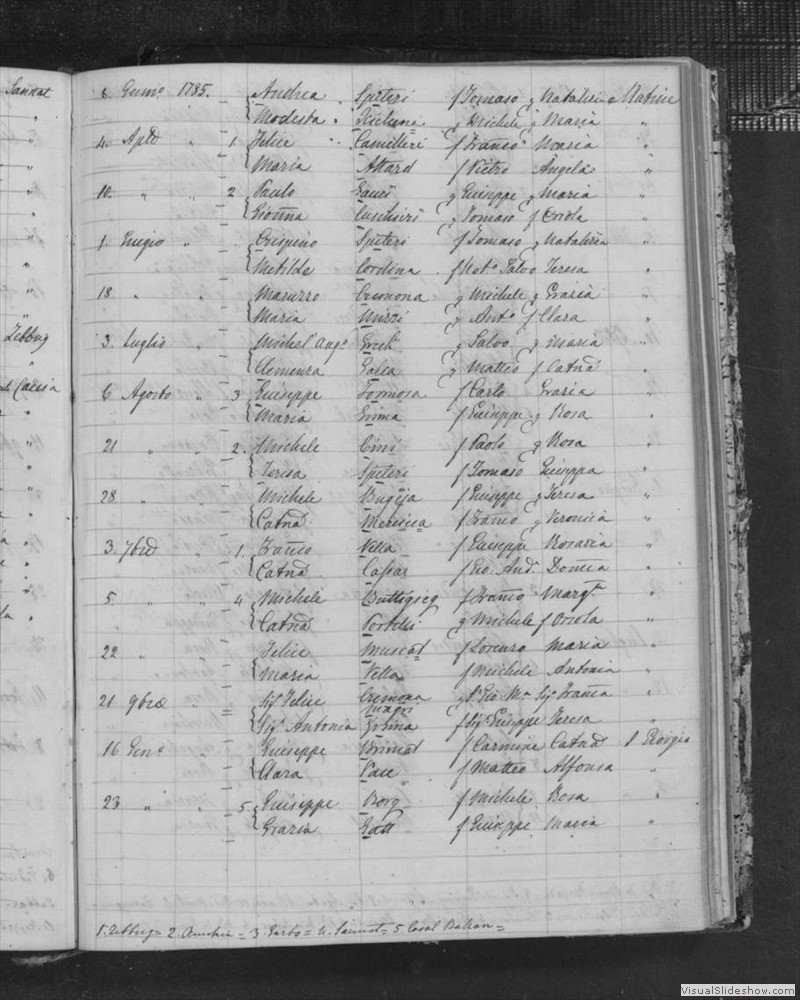 Sannat
Zebbug
8. Genno. 1785. Andrea Spiteri f Tomaso g Natalizia Matrice
Modesta g Michele g Maria "
4. Aple " 1. Felice Camilleri f Franco Maria "
Maria Attard f Pietro Angela "
10. " " 2 Paulo g Giuseppe g Maria "
Gionna g Tomaso f Oriola "
1. Giugio " Crispino Spiteri f Tomaso g Natalizia "
Metilde Cordina f Not. Salvo Teresa "
18 " " Maruzzo Cremona g Michele g Grazia "
Maria Mizzi g Anto. f Clara "
3. Luglio " Michel' Ango. Grech g Salvo g Maria "
Clemenza Galea g Matteo f Catna "
6 Agosto " 3 Giuseppe Formosa f Carlo Grazia "
Maria Grima f Giuseppe g Rosa "
21 " " 2. Michele Cini f Paolo g Rosa "
Teresa Spiteri f Tomaso Giuseppa "
28 " " Michele Bugeja f Giuseppe g Teresa "
Catna Mercieca f Franco g Veronica "
3. 7bre " 1. Franco Vella f Giuseppe Rosaria "
Catna Cassar f Gio. And. Domca "
5 " " 4 Michele Buttigieg f Franco Margta "
Catna Portelli g Michele f Oriola "
22 " " Felice Muscat f Lorenzo Maria "
Maria Vella f Michele Antonia "
21 9bre " Sig. Felice Cremona g S. Gio. Ma. Sig. Franca "
Magri
Sig. Antonia f Sig. Giuseppe Teresa "
16 Genno. " Giuseppe f Carmine Catna S Giorgio
Clara Pace f Matteo Alfonsa "
23 " " 5 Giuseppe Borg f Michele Rosa "
Grazia Gatt f Giuseppe Maria "
1. Zebbug = 2. = 3. Garbo = 4. Sannat = 5 Casal Balzan =
VisualSlideshow.com